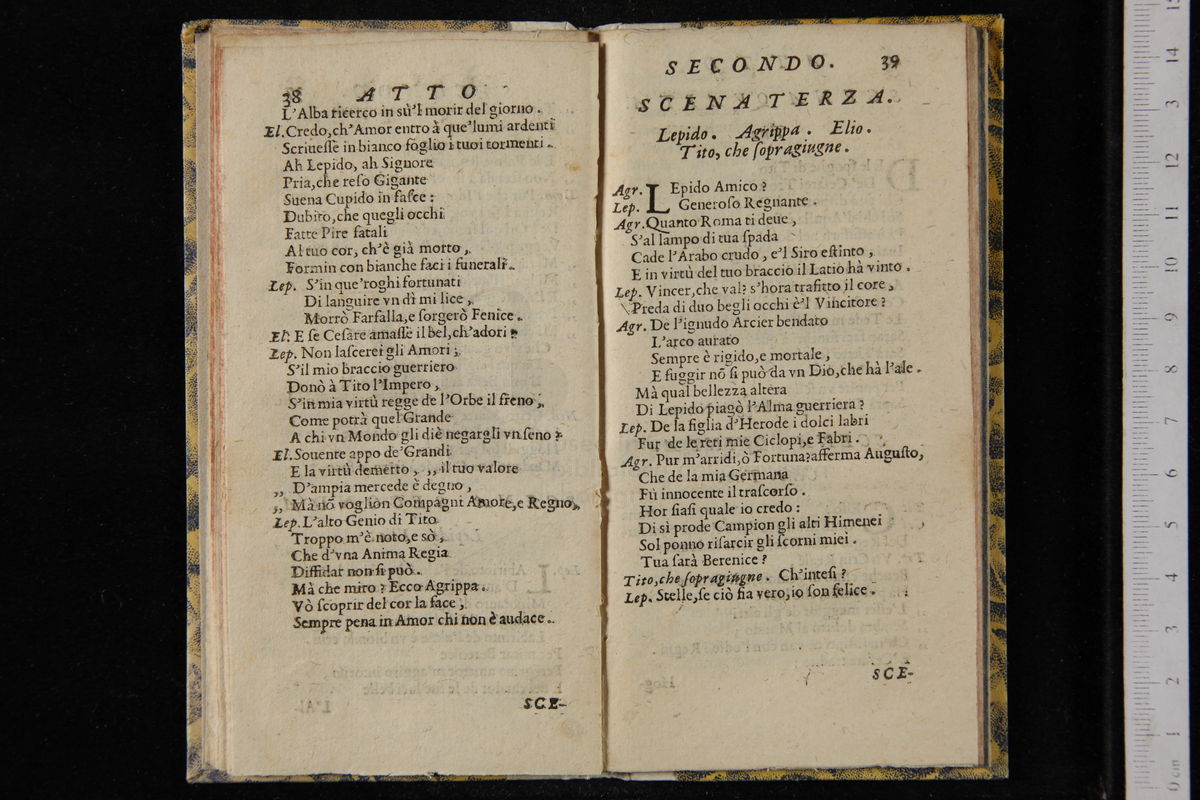 38 ATTO
L'Alba ricerco in sù'l morir del giorno.
El. Credo, ch'Amor entro à que'lumi ardenti
Scriuesse in bianco foglio i tuoi tormenti.
Ah Lepido, ah Signore
Pria, che reso Gigante
Suena Cupido in fasce:
Dubito, che quegli occhi
Fatte Pire fatali
Al tuo cor, ch'è già morto,
Formin con bianche faci i funerali.
Lep. S'in que'roghi fortunati
Di languire vn dì mi lice,
Morrò Farfalla, e sorgerò Fenice.
El. E se Cesare amasse il bel, ch'adori?
Lep. Non lascerei gli Amori;
S'il mio braccio guerriero
Donò à Tito l'Impero,
S'in mia virtù regge de l'Orbe il freno,
Come potrà quel Grande
A chi vn Mondo gli diè negargli vn seno?
El. Souente appo de'Grandi
E la virtù demerto, ,, il tuo valore
,, D'ampia mercede è degno,
,, Mà nõ voglion Compagni Amore, e Regno,
Lep. L'alto Genio di Tito
Troppo m'è noto, e sò,
Che d'vna Anima Regia
Diffidar non si può.
Mà che miro? Ecco Agrippa.
Vò scoprir del cor la face,
Sempre pena in Amor chi non è audace.
SCE-
SECONDO. 39
SCENA TERZA.
Lepido. Agrippa. Elio.
Tito, che sopragiugne.
Agr. LEpido Amico?
Lep. Generoso Regnante.
Agr. Quanto Roma ti deue,
S'al lampo di tua spada
Cade l'Arabo crudo, e'l Siro estinto,
E in virtù del tuo braccio il Latio hà vinto.
Lep. Vincer, che val? s'hora trafitto il core,
Preda di duo begli occhi è'l Vincitore?
Agr. De l'ignudo Arcier bendato
L'arco aurato
Sempre è rigido, e mortale,
E fuggir nõ si può da vn Dio, che hà l'ale.
Mà qual bellezza altera
Di Lepido piagò l'Alma guerriera?
Lep. De la figlia d'Herode i dolci labri
Fur de le reti mie Ciclopi, e Fabri.
Agr. Pur m'arridi, ò Fortuna? afferma Augusto,
Che de la mia Germana
Fù innocente il trascorso.
Hor siasi quale io credo:
Di sì prode Campion gli alti Himenei
Sol ponno risarcir gli scorni miei.
Tua sarà Berenice?
Tito, che sopragiugne. Ch'intesi?
Lep. Stelle, se ciò fia vero, io son felice.
SCE-